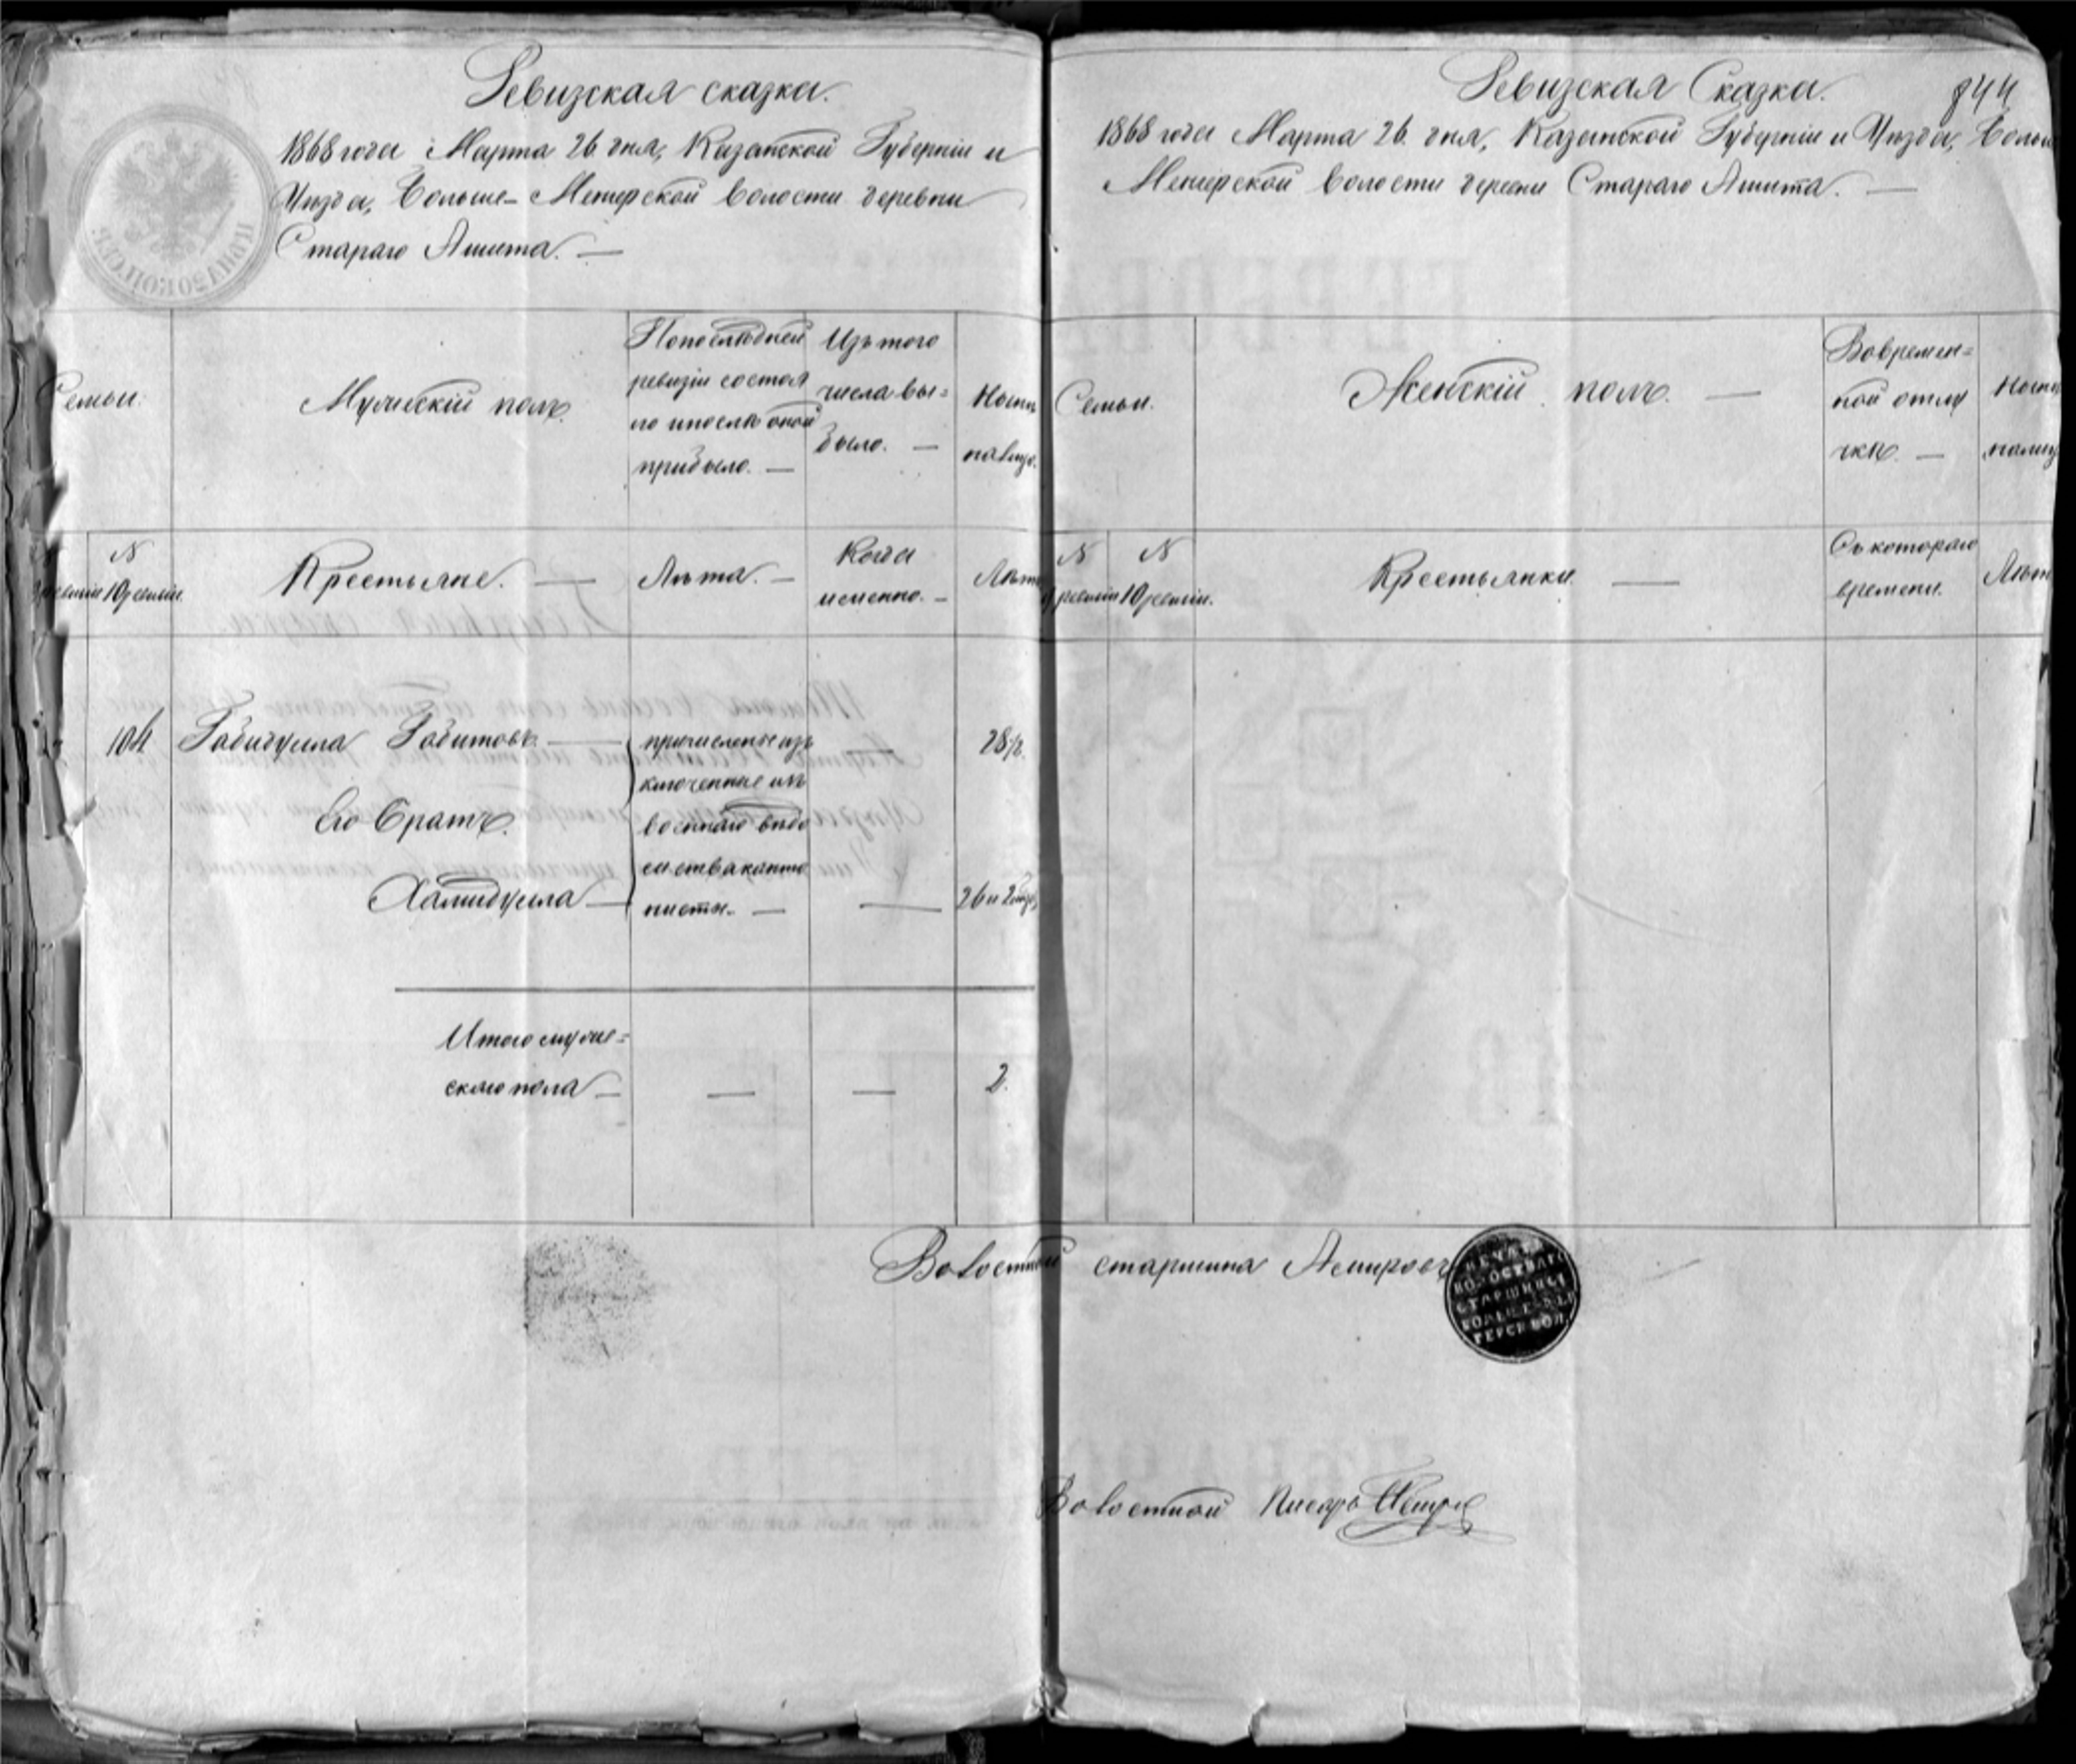 Ревизская сказка.
1868 года Марта 26 дня, Казанской Губерніи и
Уѣзда, Больше-Менгерской волости деревни
Стараго Ашита. —
Семьи.
Мужескій полъ.
По последней
ревизіи состоя
ло и после оной
прибыло. —
Изъ того
числа вы=
было. —
Ныне
на лицо.
№
ревизіи
№
10 ревизіи.
Крестьяне. —
Лѣта. —
Когда
именно. —
Лѣта
104
Габидулла Габитовъ —
Его братъ.
Хамидулла —
причислены из
ключенные изъ
военнаго ведо
мства канто
нисты. —
—
28 ½.
—
Итого муже=
скаго пола —
—
—
2.
Ревизская Сказка.
844
1868 года Марта 26 дня, Казанской Губерніи и Уѣзда, Больше
Менгерской волости деревни Стараго Ашита. —
Семьи.
Женскій полъ. —
Во времен=
ной отлу
чкѣ. —
Ныне
налицо
№
9 ревизіи
№
10 ревизіи.
Крестьянки. —
Съ котораго
времени.
Лѣта
Волостной старшина Амировъ
ПЕЧАТЬ
ВОЛОСТНАГО
СТАРШИНЫ
Волостной Писарь